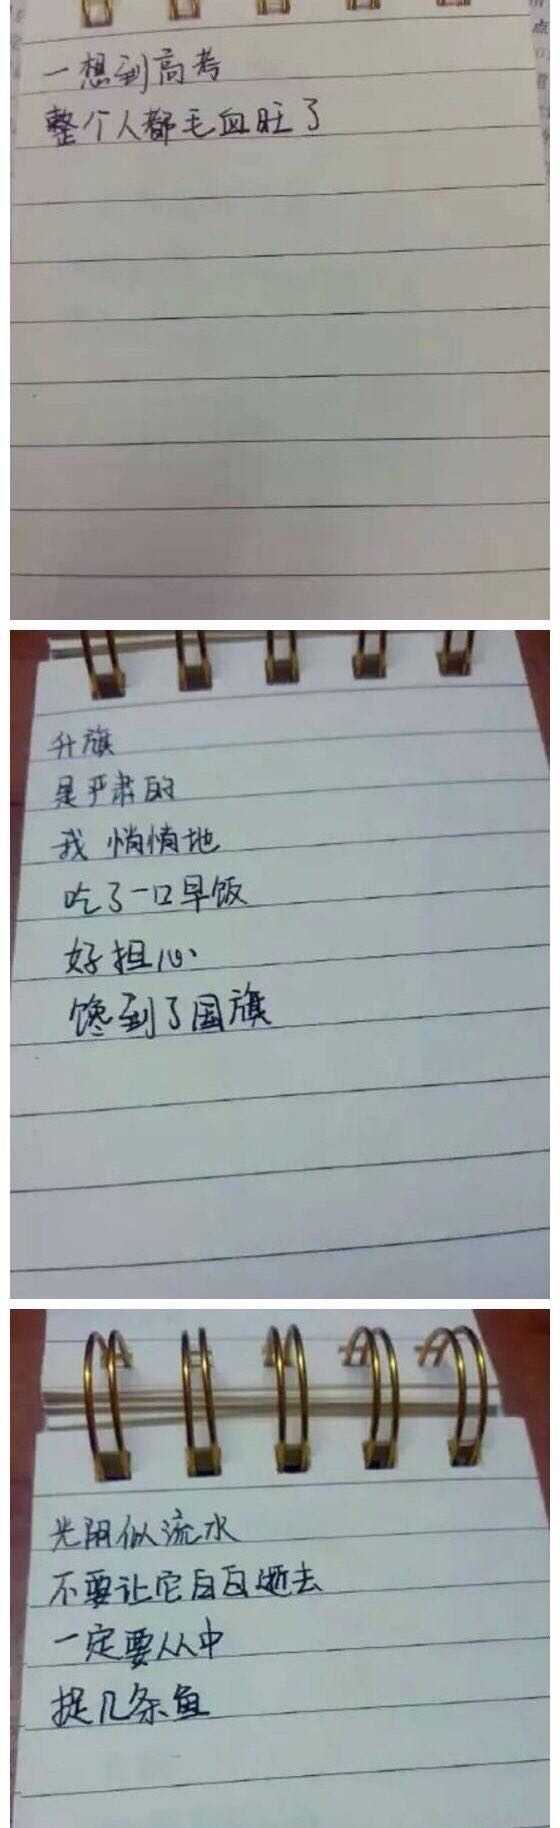 一想到高考
整个人都毛血旺了
升旗
是严肃的
我悄悄地
吃了一口早饭
好担心
馋到了国旗
光阴似流水
不要让它白白逝去
一定要从中
捉几条鱼